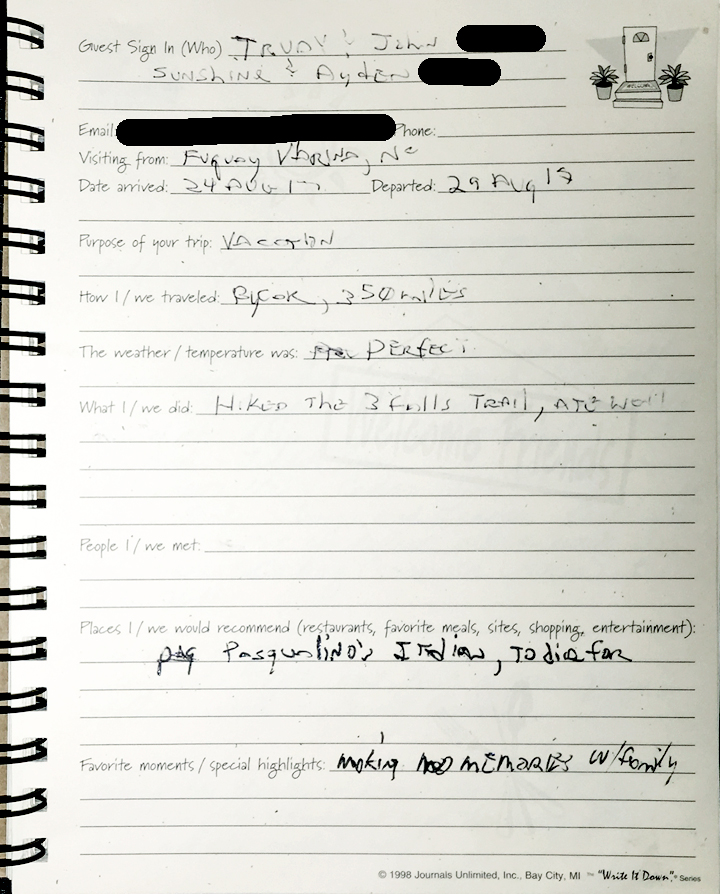 Guest Sign In (Who) TRUDY & John
SUNSHINE & Ayden
WELCOME
Email: Phone:
Visiting from: Fuquay VARINA, NC
Date arrived: 24 AUG 17 Departed: 29 AUG 17
Purpose of your trip: VACATION
How I/we traveled: By CAR, 350 miles
The weather/temperature was: PERFECT
What I/we did: HIKED THE 3 Falls TRAIL, ATE WELL
People I/we met:
Places I/we would recommend (restaurants, favorite meals, sites, shopping, entertainment):
Pasqualino's Italian, TO die for
Favorite moments/special highlights: Making MEMORIES w/family
© 1998 Journals Unlimited, Inc., Bay City, MI ™ "Write It Down"® Series